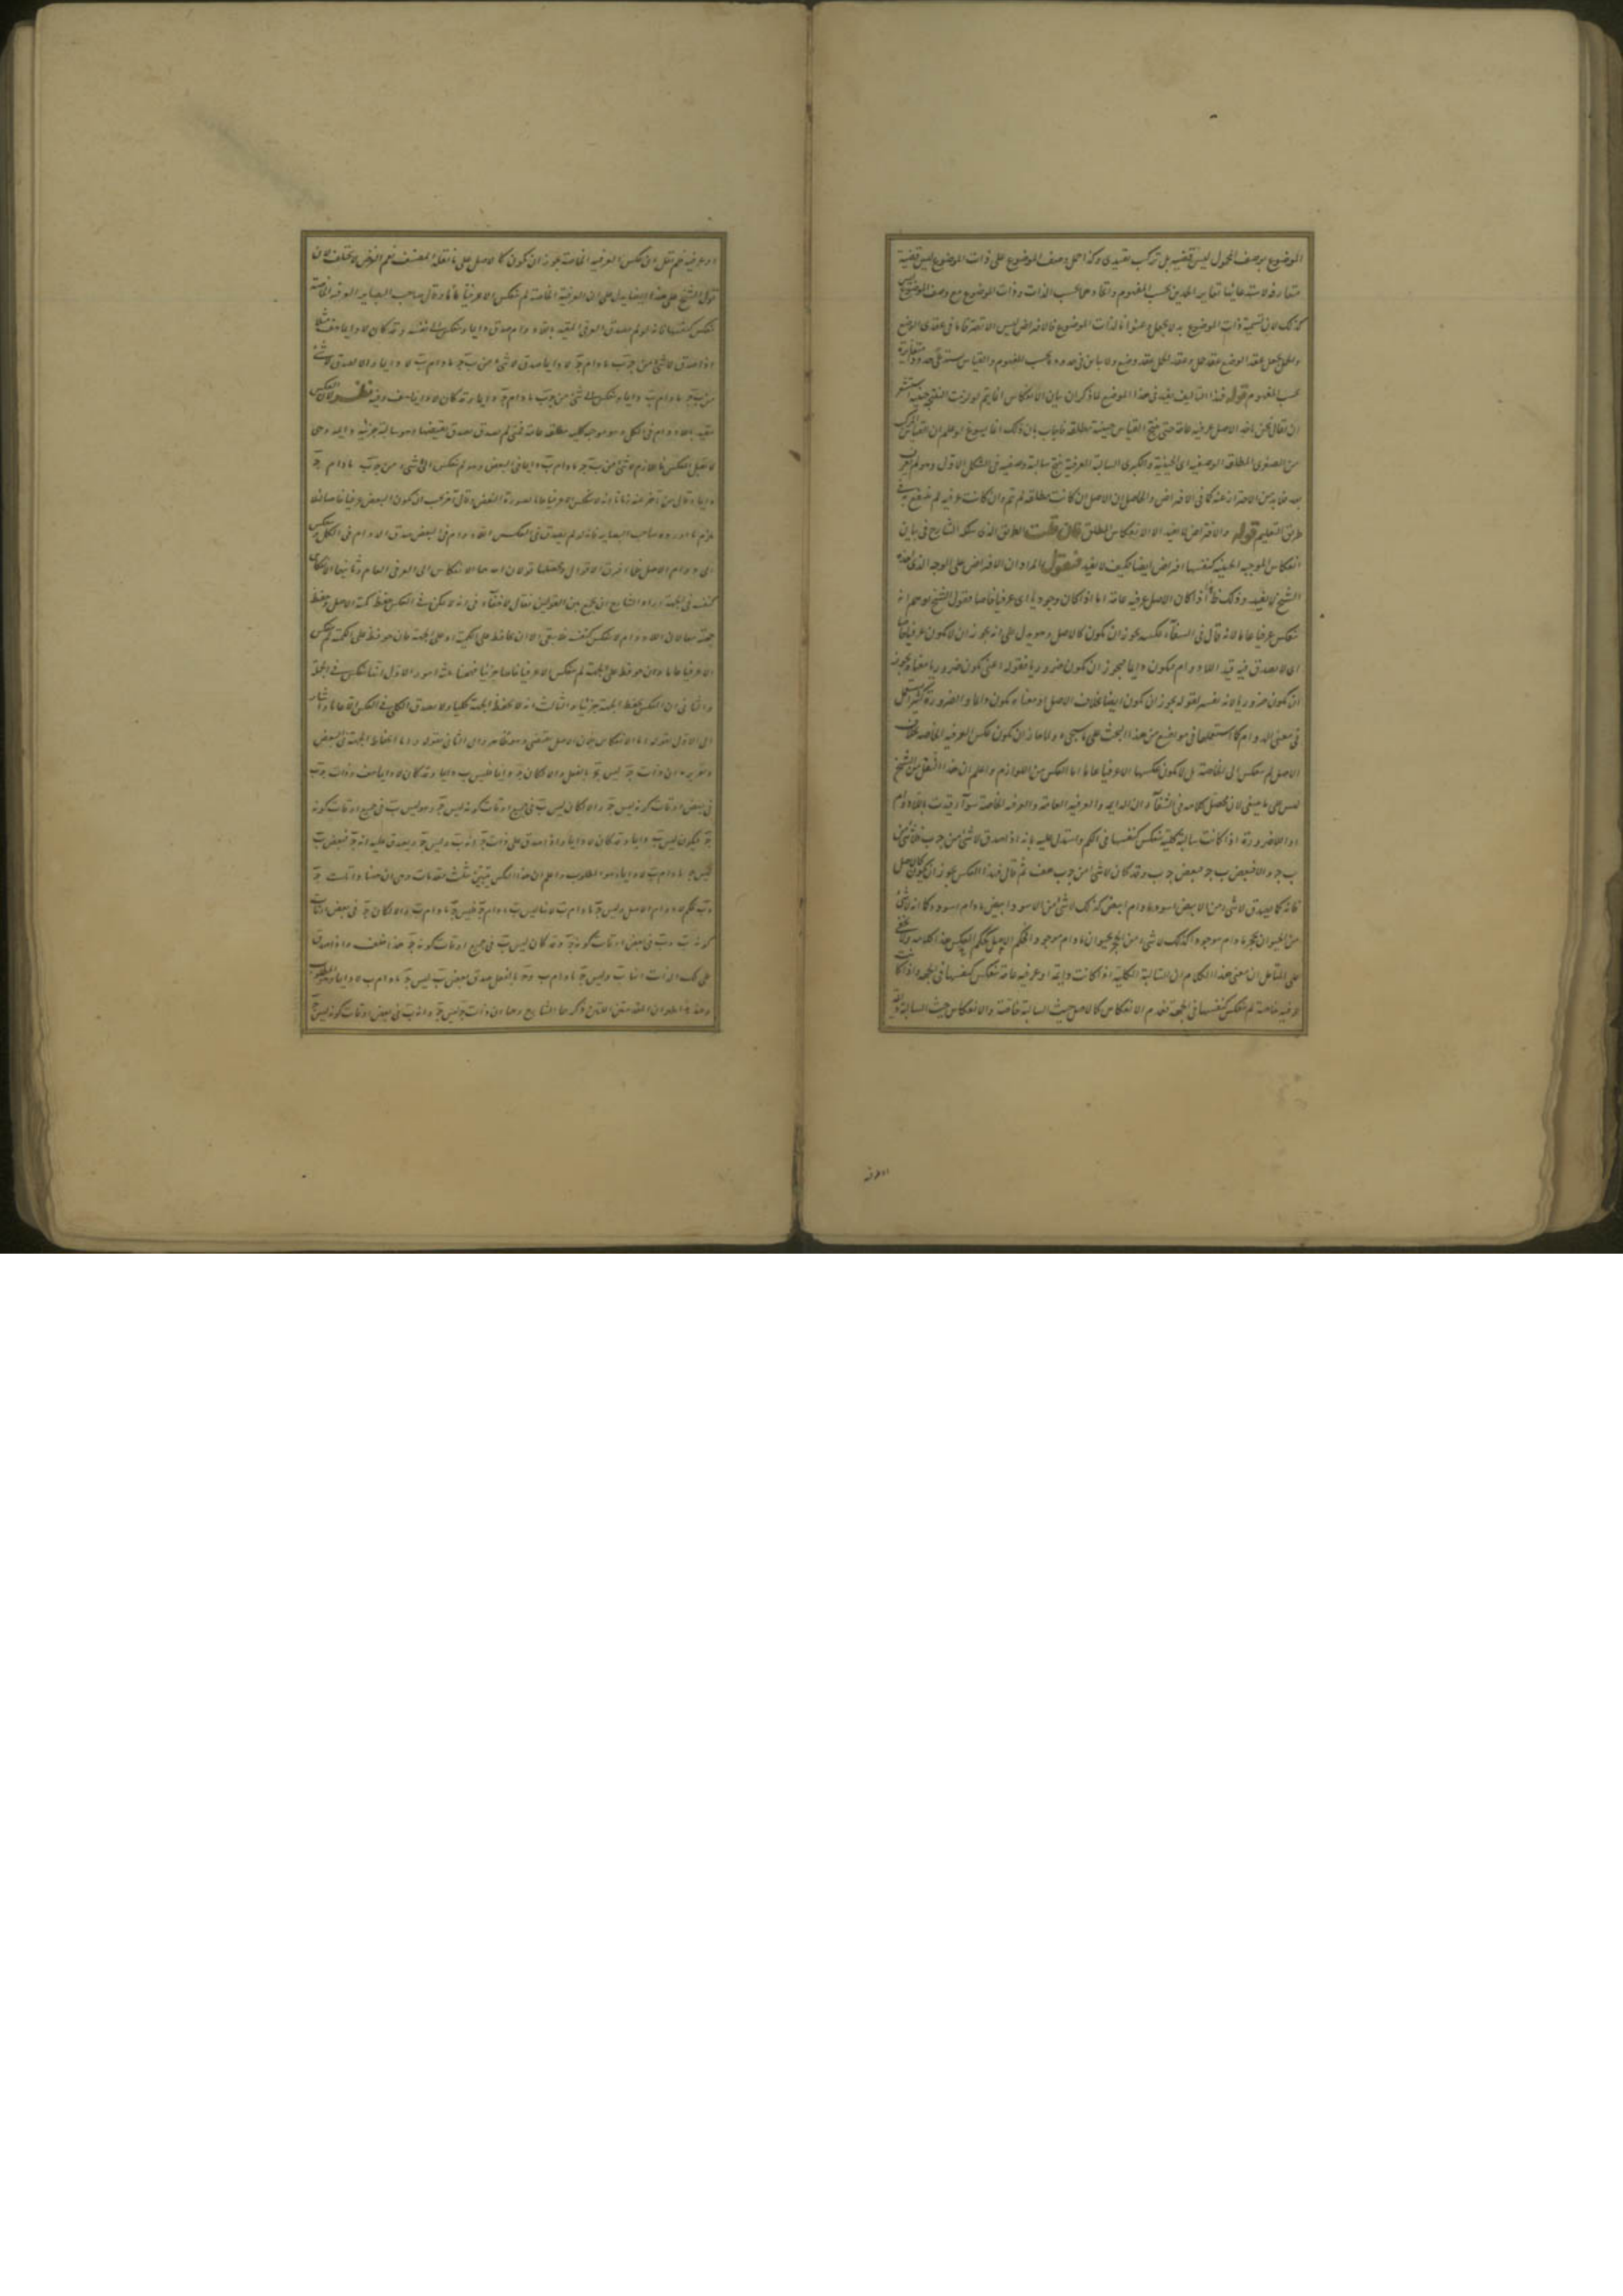 الموضوع بوصف المحمول ليس قضية بل تركب تقييدى وكذا حمل وصف الموضوع على ذات الموضوع ليس قضية
متعارفة لاستدعائها تغاير الحدين بحسب المفهوم واتحادهما بحسب الذات وذات الموضوع مع وصف الموضوع ليس
كذلك لان تسمية ذات الموضوع به لا يجعل عنوانا لذات الموضوع فالافتراض ليس الا تصرفا ما فى عقدى الوضع
والحمل بجعل عقد الوضع عقد حمل وعقد الحمل عقد وضع ولا تباين فى حدوده بحسب المفهوم والقياس يستدعى حدودا متغايرة
بحسب المفهوم قوله فهذا التاليف يفيد فى هذا الموضع لما ذكر ان بيان الانعكاس انما يتم لو لزمت النتيجة حينية استشعر
ان يقال نحن ناخذ الاصل عرفية عامة حتى ينتج القياس حينية مطلقة فاجاب بان ذلك انما يسوغ لو علم ان القياس المركب
من الصغرى المطلقة الوصفية اى الحينية والكبرى السالبة العرفية ينتج سالبة وصفية فى الشكل الاول وهو لم يعرف
بعد فلا بد من الاحتراز عنه كما فى الافتراض والحاصل ان الاصل ان كانت مطلقة لم تتم وان كانت عرفية لم ينتفع به فى
طريق التعليم قوله والافتراض لا يفيد الا الانعكاس المطلق فان قلت الطريق الذى سلكه الشارح فى بيان
انعكاس الموجبة الحينية كنفسها افتراض ايضا فكيف لا يفيد فنقول المراد ان الافتراض على الوجه الذى اخذه
الشيخ لا يفيد وذلك ظ اذا كان الاصل عرفية عامة اما اذا كان وجوديا اى عرفيا خاصا فقول الشيخ يوهم انه
ينعكس عرفيا عاما لانه قال فى الشفاء عكسه يجوز ان يكون كالاصل وهو يدل على انه يجوز ان لا يكون عرفيا خاصا
اى لا يصدق فيه قيد اللادوام فيكون دايما فيجوز ان يكون ضروريا فقوله اعنى يكون ضروريا معناه يجوز
ان يكون ضروريا لانه نفسه لقوله يجوز ان يكون ايضا بخلاف الاصل او معناه يكون دايما والضرورة كثيرا تستعمل
فى معنى الدوام كما استعملها فى مواضع من هذا البحث على ما سيجىء ولما جاز ان يكون عكس العرفية الخاصة بخلاف
الاصل لم ينعكس الى الخاصة بل لا يكون عكسها الا عرفيا عاما اما العكس من اللوازم واعلم ان هذا النقل من الشيخ
ليس على ما ينبغى لان محصل كلامه فى الشفاء ان الدايمة والعرفية العامة والعرفية الخاصة سواء قيدت باللادوام
او اللاضرورة اذا كانت سالبة كلية تنعكس كنفسها فى الكم واستدل عليه بانه اذا صدق لا شئ من ج ب فلا شئ من
ب ج والا فبعض ب ج فبعض ج ب وقد كان لا شئ من ج ب هف ثم قال فهذا العكس يجوز ان يكون كالاصل
فانه كما يصدق لا شئ من الابيض اسود ما دام ابيض كذلك لا شئ من الاسود ابيض ما دام اسود وكما انه لا شئ
من الحيوان بحجر ما دام موجودا كذلك لا شىء من الحجر بحيوان ما دام موجودا فحكم الاصل كحكم العكس هذا كلامه ولا يخفى
على المتامل ان معنى هذا الكلام ان السالبة الكلية اذا كانت دايمة او عرفية عامة تنعكس كنفسها فى الجهة واذا كانت
عرفية خاصة لم تنعكس كنفسها فى الجهة فعدم الانعكاس كالاصل حيث السالبة خاصة والانعكاس حيث السالبة دايمة
او عرفية
او عرفية فلم يقل ان عكس العرفية الخاصة يجوز ان يكون كالاصل على ما نقله المصنف نعم الغرض لا يختلف لان
قول الشيخ على هذا ايضا يدل على ان العرفية الخاصة لم تنعكس الا عرفيا عاما وقال صاحب البصاير العرفية الخاصة
تنعكس كنفسها فانه لو لم يصدق العرفى المقيد باللادوام صدق دايما وينعكس الى نفسه وقد كان لا دايما هف مثلا
اذا صدق لا شئ من ج ب ما دام ج لا دايما صدق لا شئ من ب ج ما دام ب لا دايما والا لصدق لا شئ
من ب ج ما دام ب دايما وينعكس الى لا شئ من ج ب ما دام ج دايما وقد كان لا دايما هف وفيه نظر لان العكس
مقيد باللادوام فى الكل وهو موجبة كلية مطلقة عامة فمتى لم يصدق يصدق نقيضها وهو سالبة جزئية دايمة وهى
لا تقبل العكس فاللازم لا شئ من ب ج ما دام ب دايما فى البعض وهو لم ينعكس الى لا شىء من ج ب ما دام ج
دايما وقال من تاخر عنه زمانا انه لا ينعكس الا عرفيا عاما لصورة النقض وقال اخر يجب ان يكون البعض عرفيا خاصا لما
لزم ما اورده صاحب البصاير فانه لو لم يصدق فى العكس اللادوام فى البعض صدق الدوام فى الكل وينعكس
الى دوام الاصل هذا فرق الاقوال ومحصلها قولان احدهما الانعكاس الى العرفى العام وثانيهما الانعكاس
كنفسه فى الجهة واراد الشارح ان يجمع بين القولين فقال لا خفاء فى انه لا يمكن فى العكس حفظ كمية الاصل وحفظ
جهته معا لان اللادوام لا ينعكس كنفسه فلا يبقى الا ان يحافظ على الكمية او على الجهة فان حوفظ على الكمية لم ينعكس
الا عرفيا عاما وان حوفظ على الجهة لم ينعكس الا عرفيا خاصا جزئيا فههنا ثلثة امور الاول انها تنعكس فى الجملة
والثانى ان العكس يحفظ الجهة جزئيا والثالث انه لا يحفظ الجهة كليا ولا يصدق الكلى فى العكس الا عاما واشار
الى الاول بقوله اما الانعكاس فلان الاصل يقتضى وهو ظاهر والى الثانى بقوله واما انحفاظ الجهة فى البعض
وتقريره ان ذات ج ليس ج بالفعل والا لكان ج دايما فليس ب دايما وقد كان لا دايما هف وذات ج ب
فى بعض اوقات كونه ليس ج والا لكان ليس ب فى جميع اوقات كونه ليس ج وهو ليس ب فى جميع اوقات كونه
ج فيكون ليس ب دايما وقد كان لا دايما واذا صدق على ذات ج انه ب وليس ج ويصدق عليه انه ج فبعض ب
ليس ج ما دام ب لا دايما وهو المطلوب واعلم ان هذا العكس يتبين بثلث مقدمات وهى ان هنا ذاتا ثبت ج
وب بحكم لا دوام الاصل وليس ج ما دام ب لانه ليس ب ما دام ج فليس ج ما دام ب والا لكان ج فى بعض اوقات
كونه ب وب فى بعض اوقات كونه ج وقد كان ليس ب فى جميع اوقات كونه ج هذا خلف واذا صدق
على تلك الذات انها ب وليس ج ما دام ب وج بالفعل صدق بعض ب ليس ج ما دام ب لا دايما وهو المطلوب
وهذه المقدمتين اللتين ذكرهما الشارح وهما ان ذات ج ليس ج وانه ب فى بعض اوقات كونه ليس ج